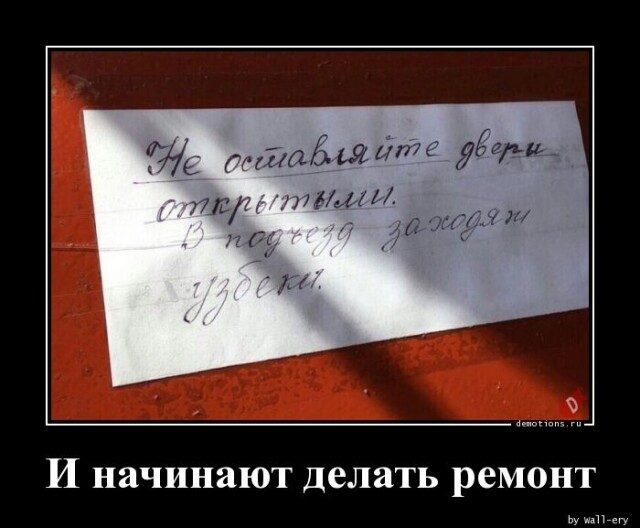 Не оставляйте двери
открытыми.
В подъезд заходят
узбеки.
demotions.ru
И начинают делать ремонт
by Wall-ery